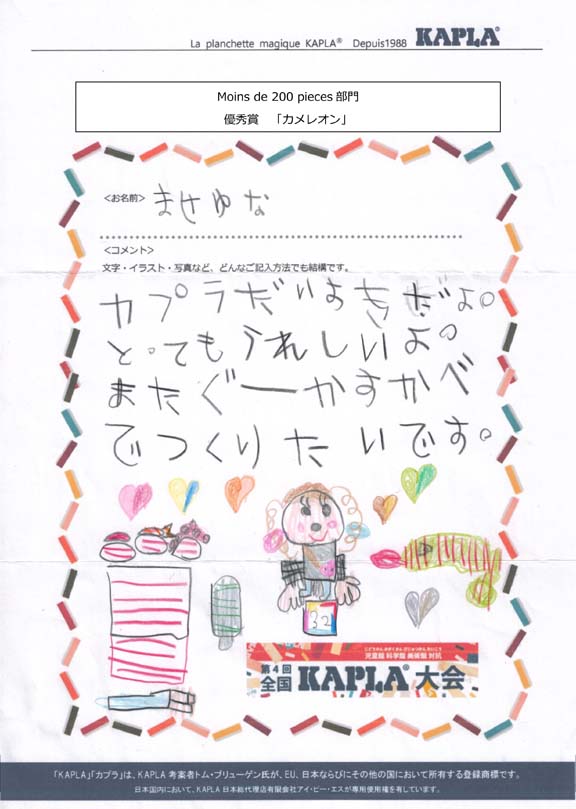 La planchette magique KAPLA® Depuis1988 KAPLA®
Moins de 200 pieces 部門
優秀賞 「カメレオン」
<お名前> ませゆな
<コメント>
文字・イラスト・写真など、どんなご記入方法でも結構です。
カプラだいすきだよ。
とってもうれしいよ。
またぐーかすかべ
でつくりたいです。
32
じどうかん かがくかん びじゅつかん たいこう
児童館 科学館 美術館 対抗
第4回
全国 KAPLA® 大会
「KAPLA」「カプラ」は、KAPLA 考案者トム・ブリューゲン氏が、EU、日本ならびにその他の国において所有する登録商標です。
日本国内において、KAPLA 日本総代理店有限会社アイ・ピー・エスが専用使用権を有しています。